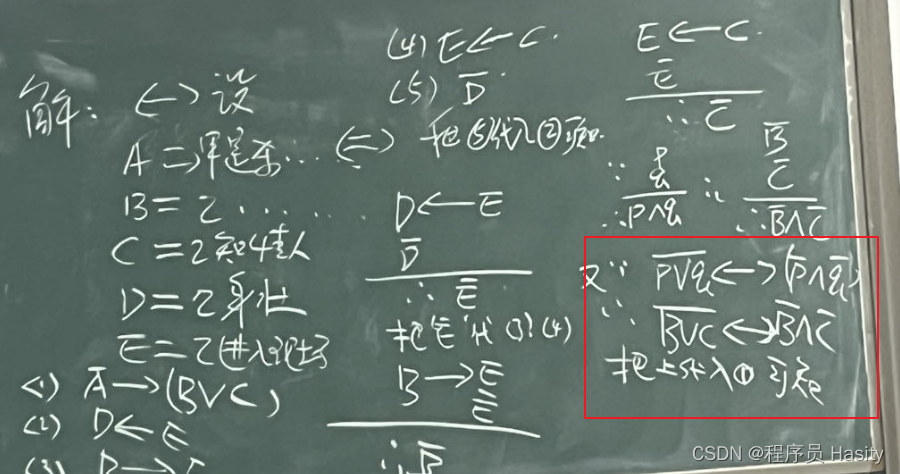 解: <一> 设
A = 甲是杀...
B = 乙......
C = 乙知情人
D = 乙身壮
E = 乙进入现场
(1) A̅→(B∨C)
(2) D←E
(3) B→E
(4) E←C.
(5) D̅.
<二> 把⑤代入②可知.
D←E
D̅
∴ E̅
把E̅代(3)(4)
B→E
E̅
∴ B̅
E←C.
E̅
∴ C̅
B̅
C̅
∴ B̅∧C̅
又∵ \overline{P∨q}←→(P̅∧q̅)
∵ \overline{B∨C}←→B̅∧C̅
把上式入① 可知
CSDN @程序员 Hasity